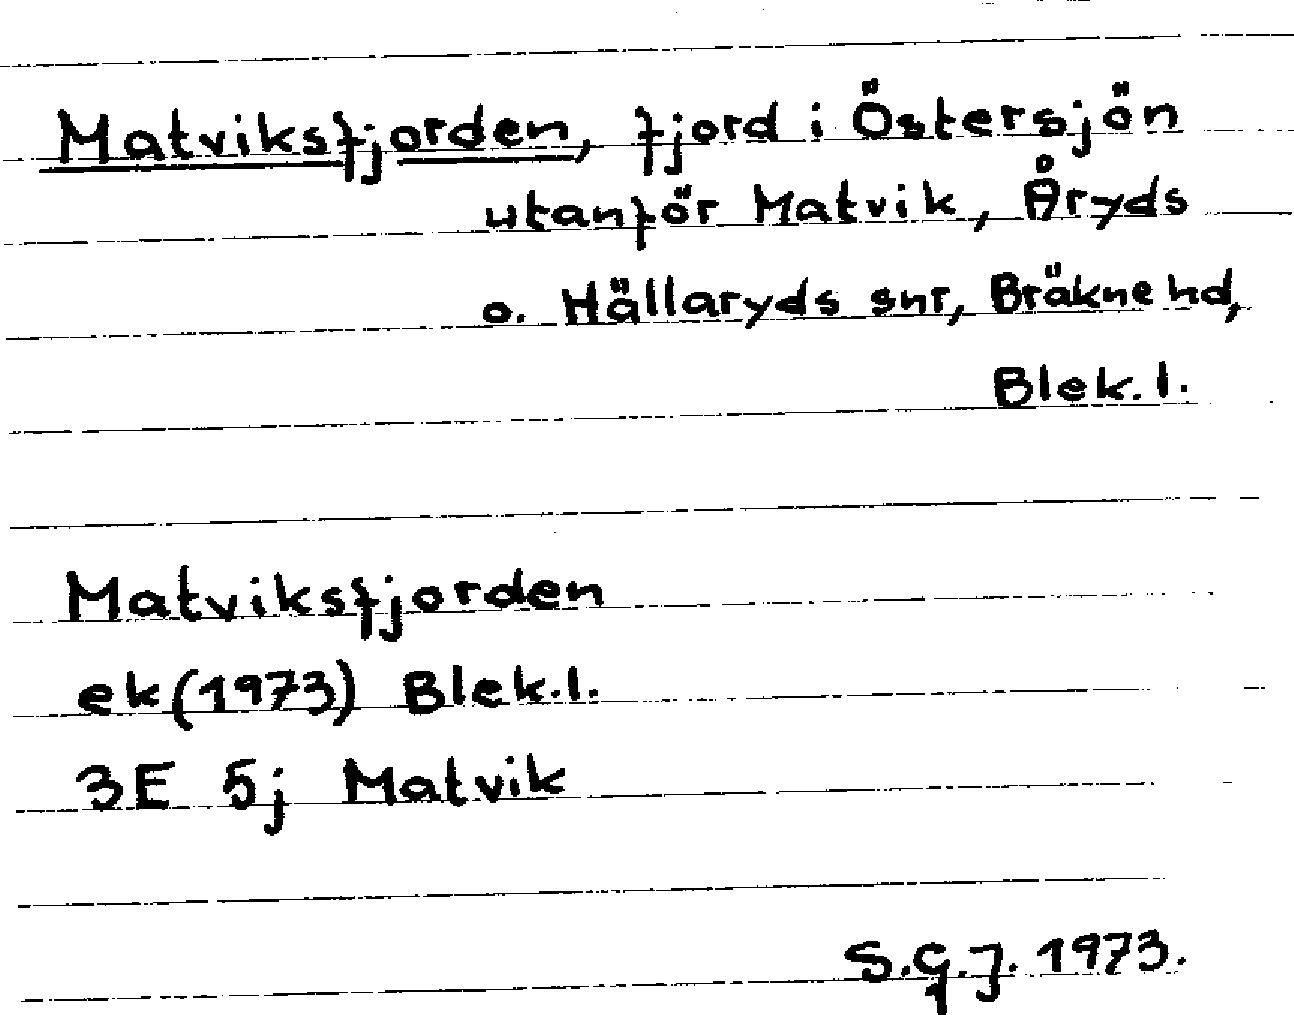 Matviksfjorden, fjord i Östersjön
utanför Matvik, Åryds
o. Hällaryds snr, Bräkne hd,
Blek. l.
Matviksfjorden
ek(1973) Blek.l.
3E 5j Matvik
S.G.J. 1973.